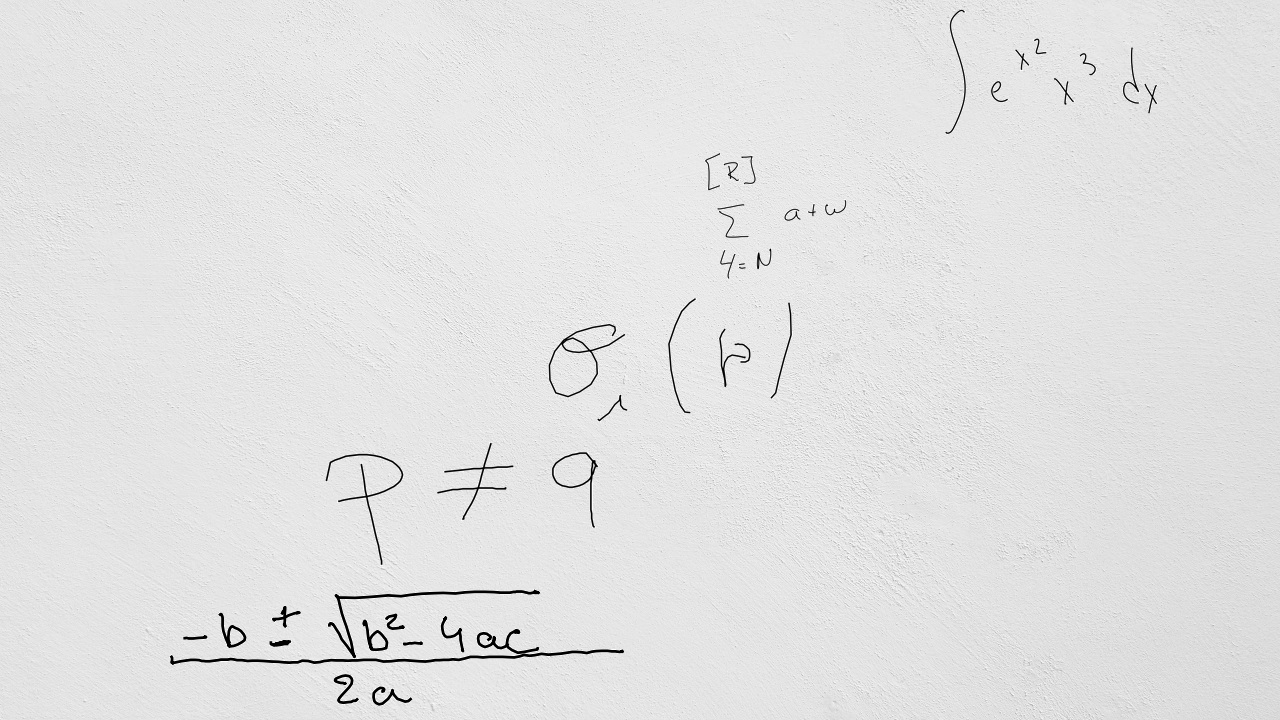 ∫ e^{x^2} x^3 dx
\sum_{4=N}^{[R]} a+w
σ_i (p)
p ≠ q
\frac{-b ± \sqrt{b^2 - 4ac}}{2a}